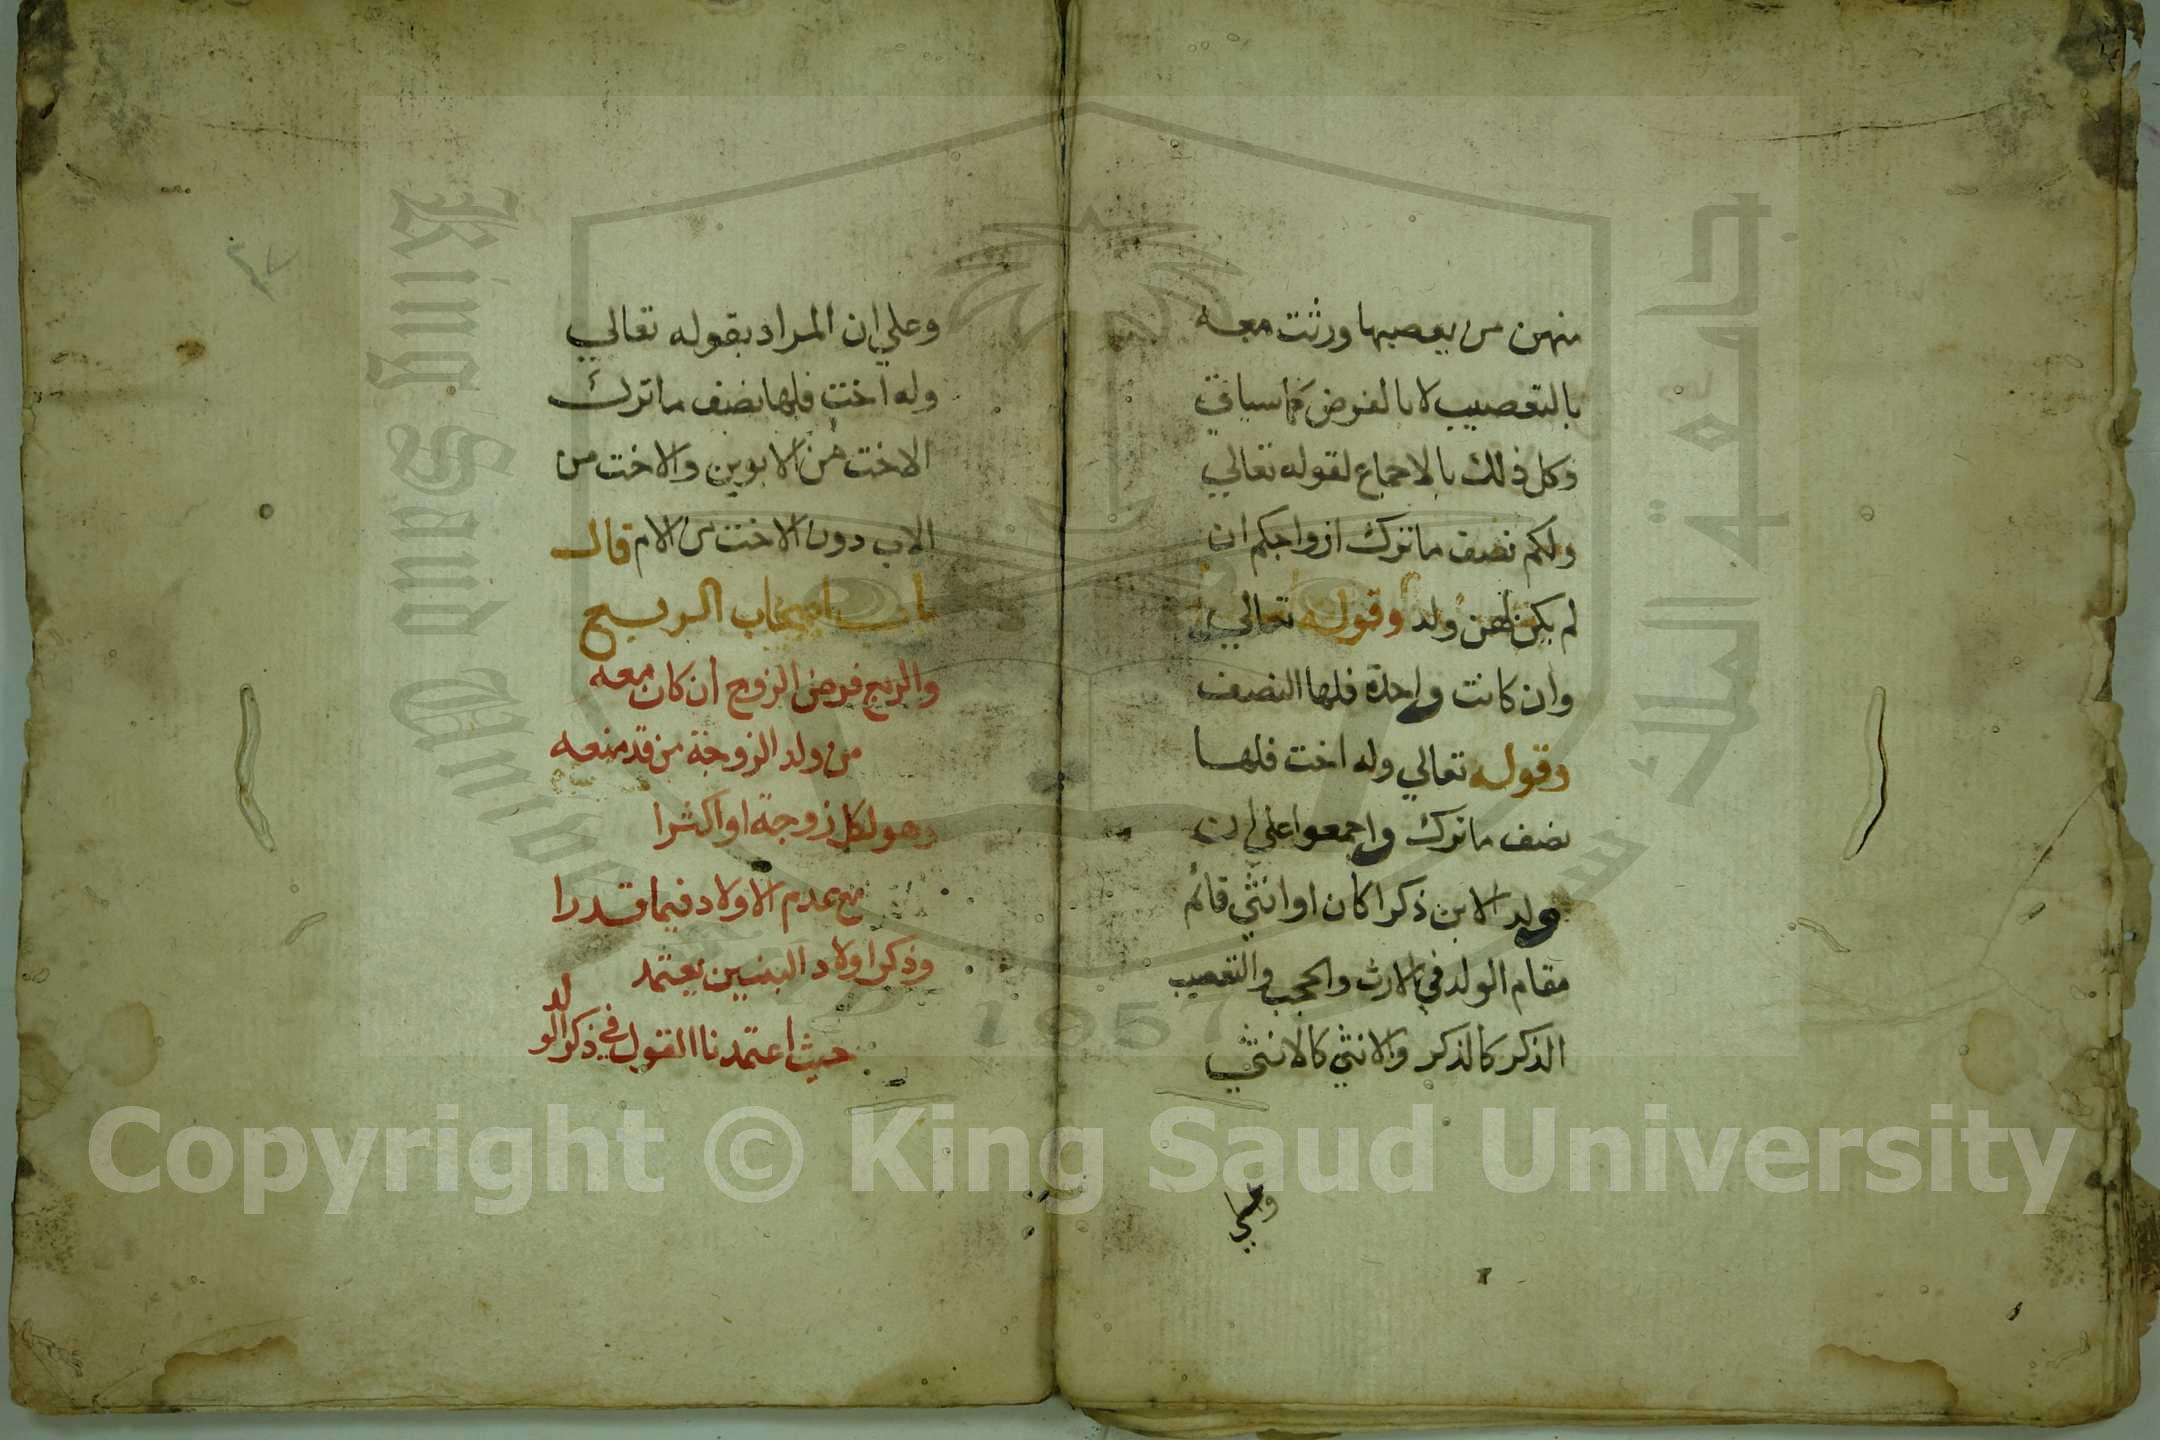 منهن من يعصبها ورثت معه
بالتعصيب لا بالفرض كما سياتي
وكل ذلك بالاجماع لقوله تعالي
ولكم نصف ما ترك ازواجكم ان
لم يكن لهن ولد وقوله تعالي
وان كانت واحدة فلها النصف
وقوله تعالي وله اخت فلها
نصف ما ترك واجمعوا علي ان
ولد الابن ذكرا كان او انثي قائم
مقام الولد في الارث والحجب والتعصيب
الذكر كالذكر والانثي كالانثي
وعلي
وعلي ان المراد بقوله تعالي
وله اخت فلها نصف ما ترك
الاخت من الابوين والاخت من
الاب دون الاخت من الام قال
باب اصحاب الربع
والربع فرض الزوج ان كان معه
من ولد الزوجة من قد منعه
وهو لكل زوجة او اكثرا
مع عدم الاولاد فيما قدرا
وذكر اولاد البنين يعتمد
حيث اعتمدنا القول في ذكر الولد
Copyright © King Saud University
King Saud University
جامعة الملك سعود
1957